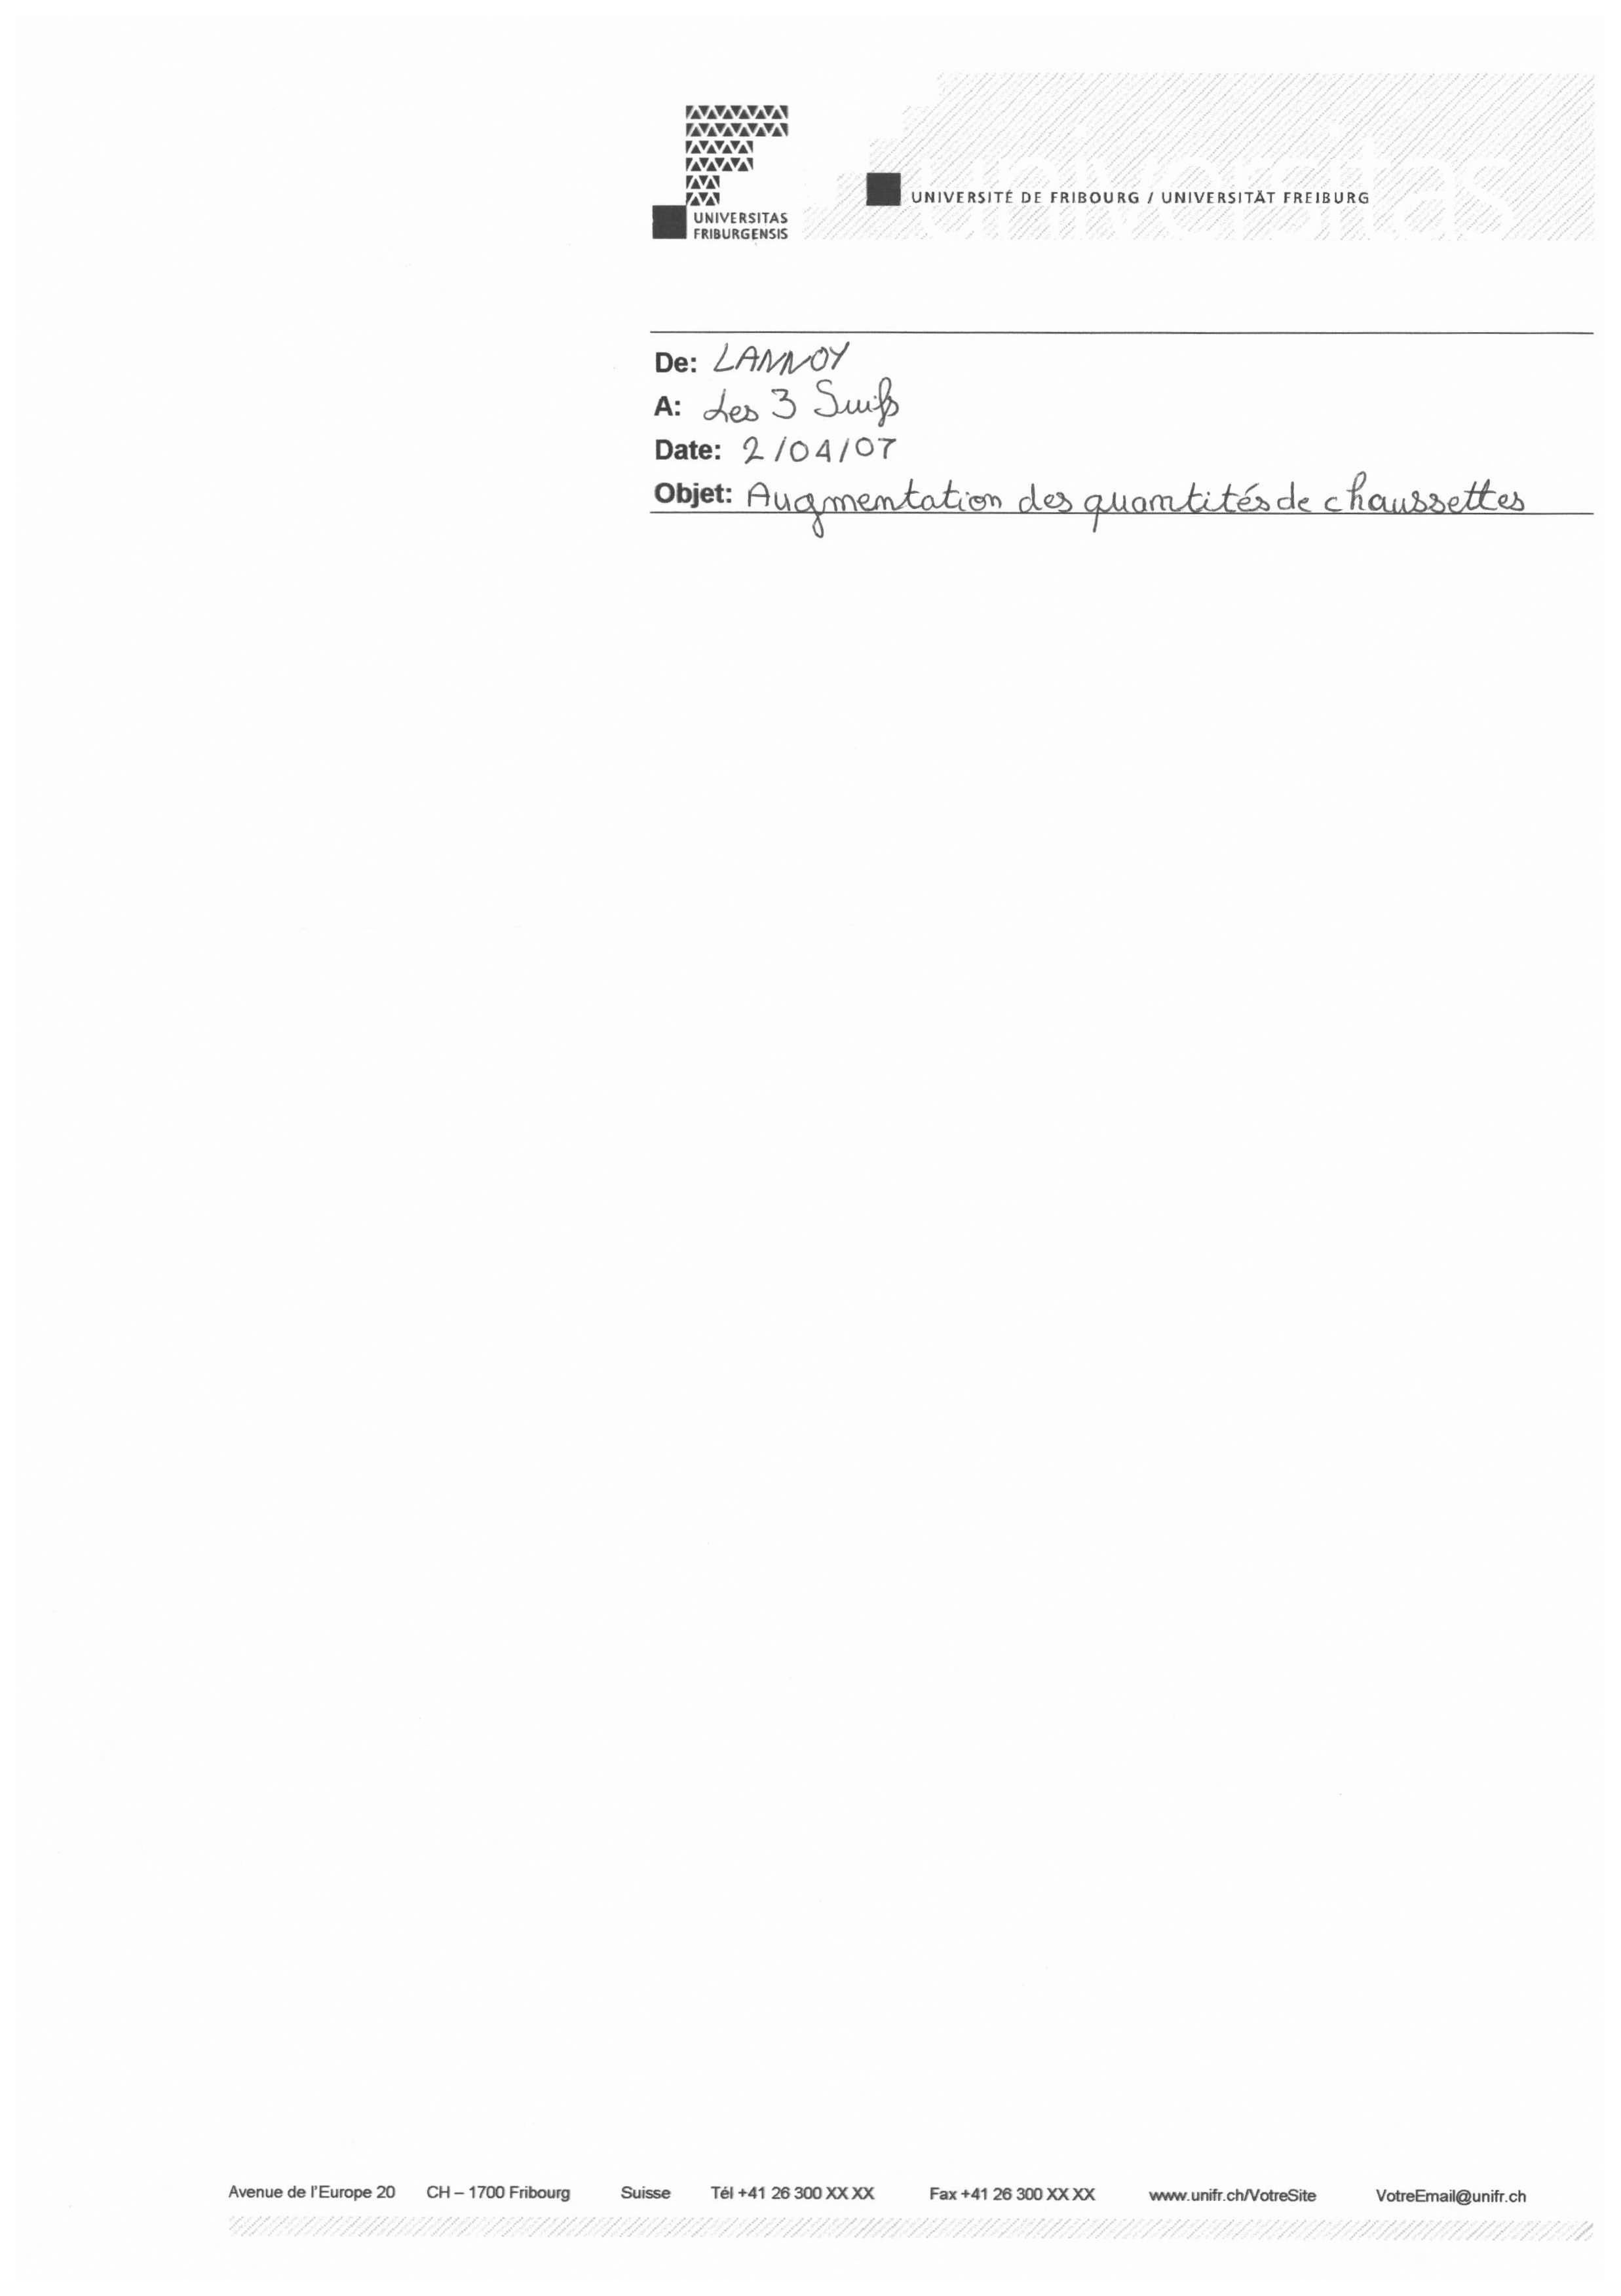 universitas
UNIVERSITAS
FRIBURGENSIS
UNIVERSITÉ DE FRIBOURG / UNIVERSITÄT FREIBURG
De: LANNOY
A: Les 3 Suiss
Date: 2/04/07
Objet: Augmentation des quantités de chaussettes
Avenue de l'Europe 20 CH – 1700 Fribourg Suisse Tél +41 26 300 XX XX Fax +41 26 300 XX XX www.unifr.ch/VotreSite VotreEmail@unifr.ch